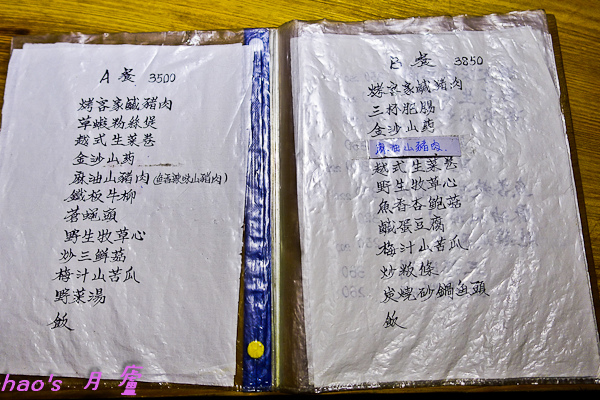 A 套 3500
烤客家鹹豬肉
草蝦粉絲煲
越式生菜卷
金沙山药
麻油山豬肉(魚香辣味山豬肉)
鐵板牛柳
蒼蠅頭
野生牧草心
炒三鮮菇
梅汁山苦瓜
野菜湯
飯
B 套 3850
烤客家鹹豬肉
三杯肥腸
金沙山药
麻油山豬肉
越式生菜卷
野生牧草心
魚香杏鮑菇
鹹蛋豆腐
梅汁山苦瓜
炒粄條
炭燒砂鍋魚頭
飯
hao's 月廬